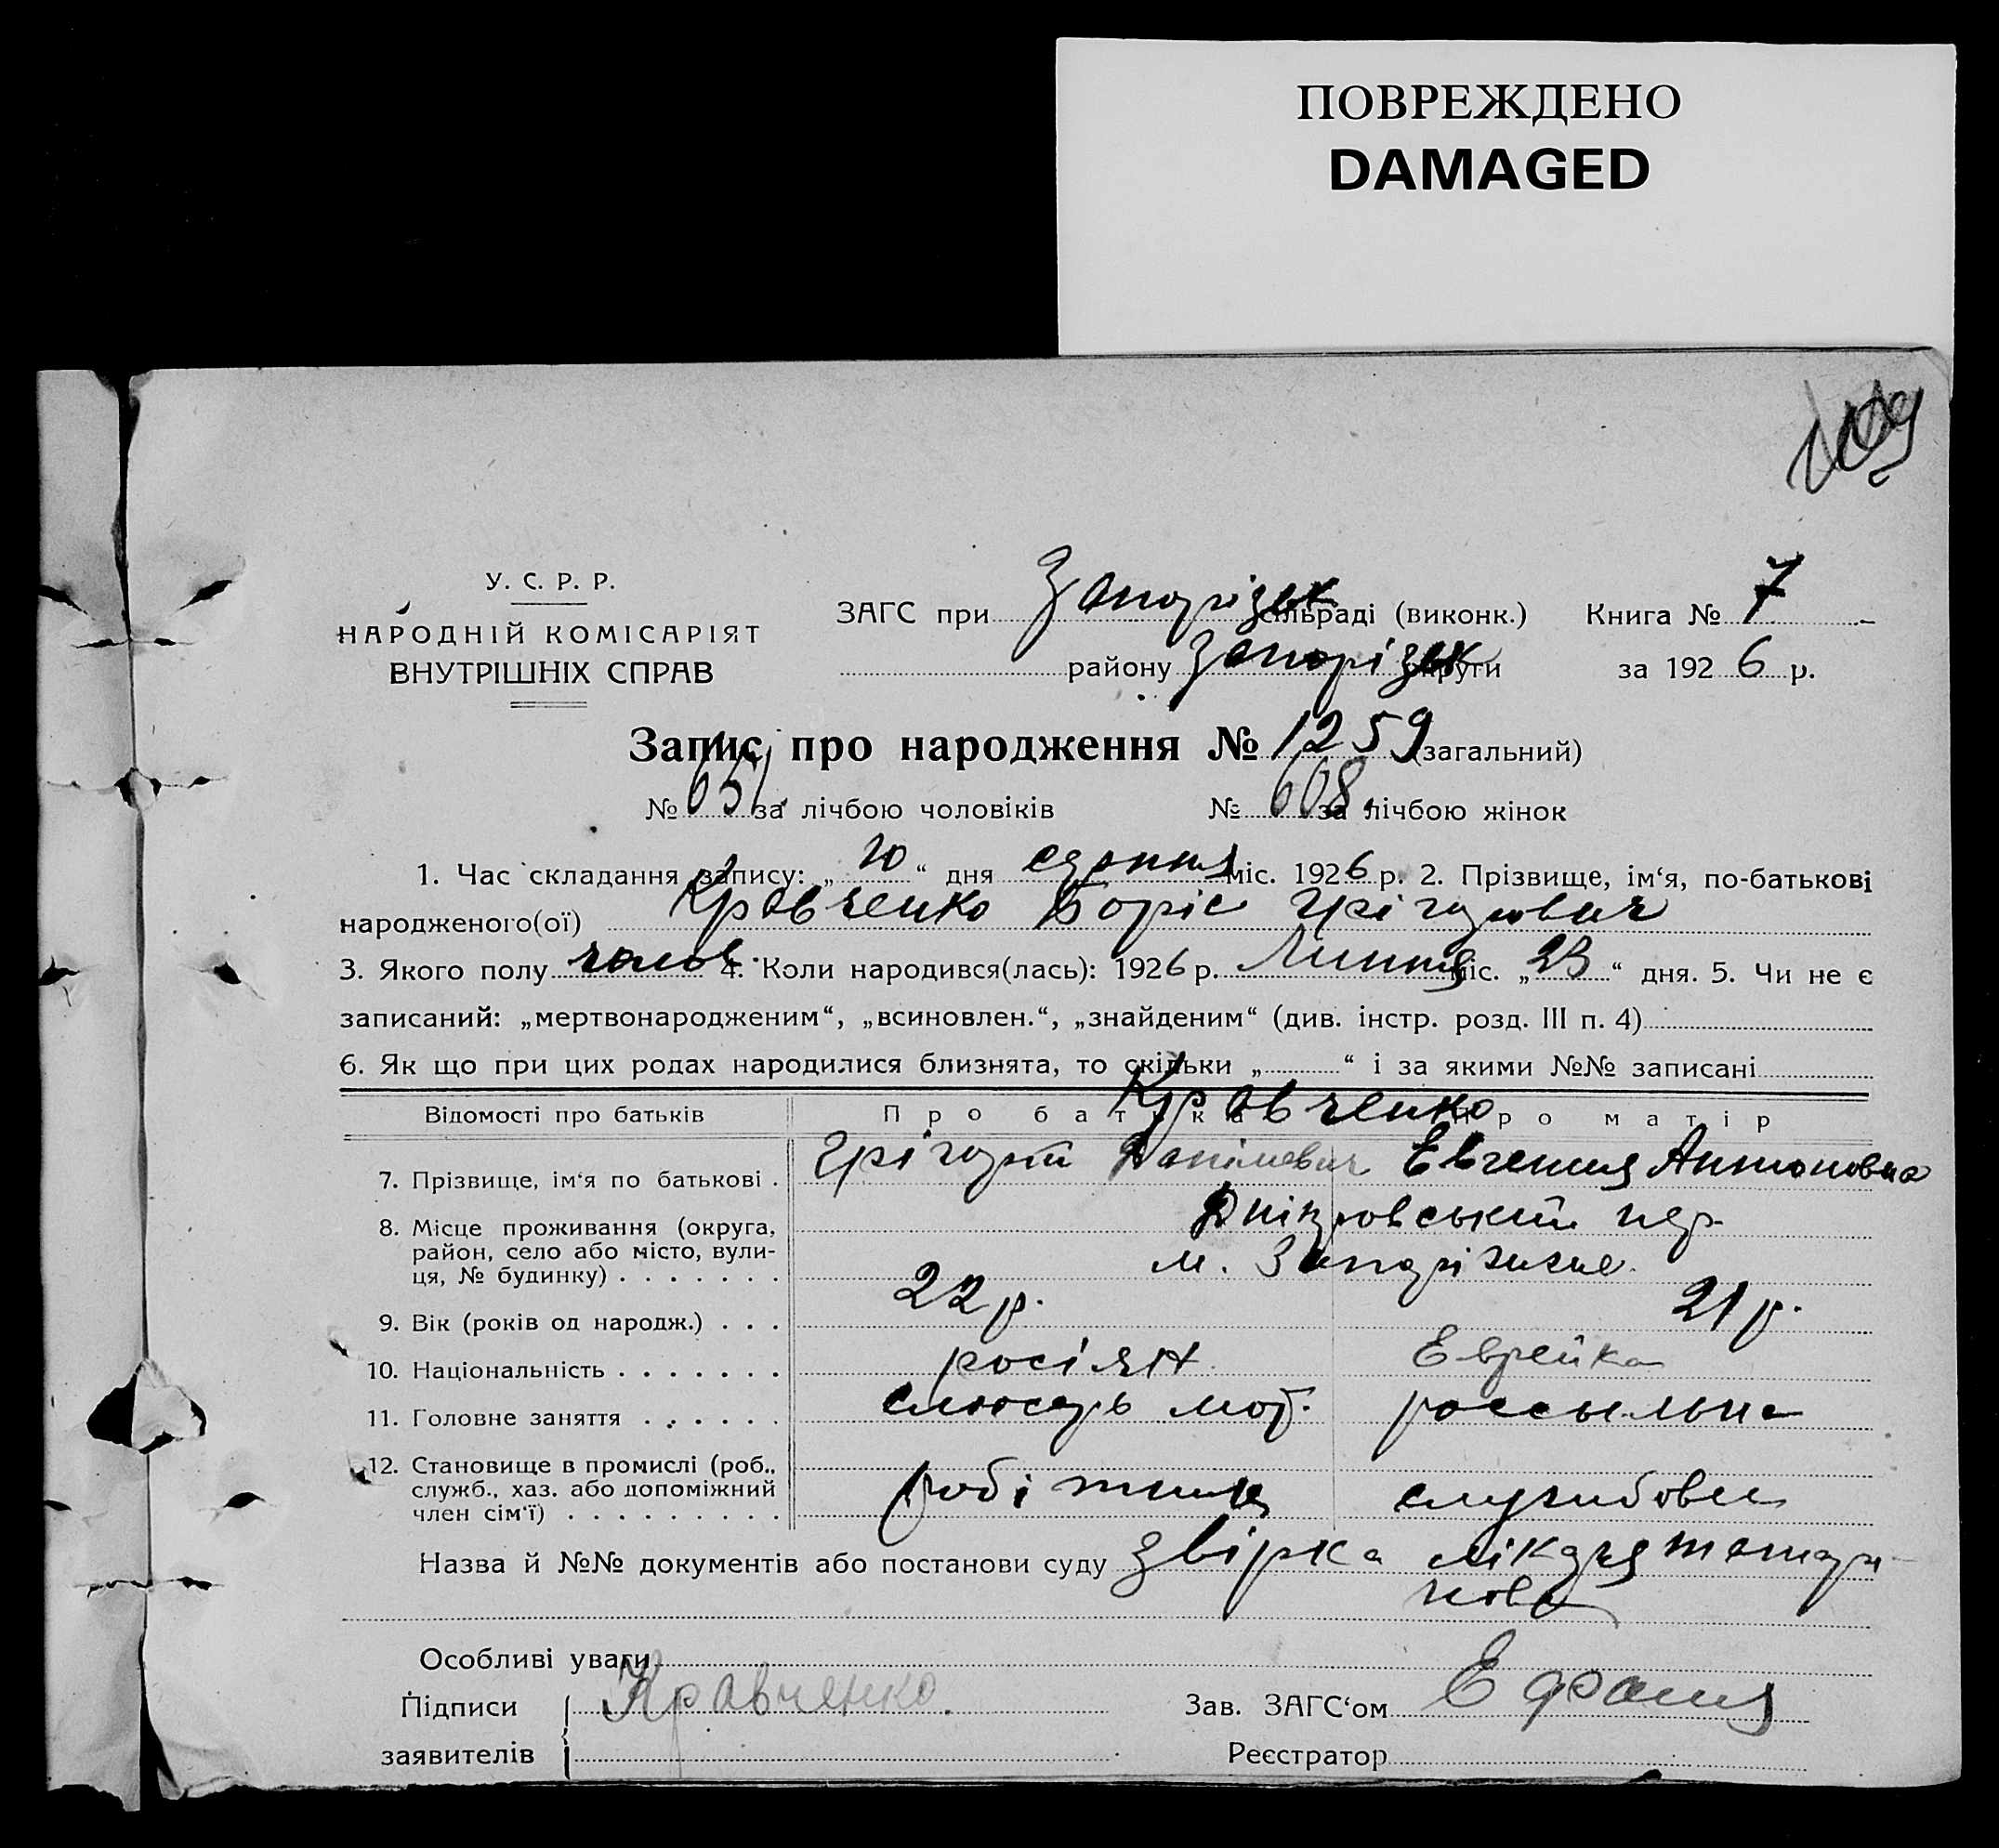 ПОВРЕЖДЕНО
DAMAGED
109
У. С. Р. Р.
НАРОДНІЙ КОМІСАРІЯТ
ВНУТРІШНІХ СПРАВ
ЗАГС при Запорізьк сільраді (виконк.) Книга № 7
району Запорізьк округи за 1926 р.
Запис про народження № 1259 (загальний)
№ 651 за лічбою чоловіків № 608 за лічбою жінок
1. Час складання запису: „10“ дня серпня міс. 1926 р. 2. Прізвище, ім‘я, по-батькові
народженого(ої) Кравченко Боріс Грігорович
3. Якого полу чолов. 4. Коли народився(лась): 1926 р. Липня міс. „23“ дня. 5. Чи не є
записаний: „мертвонародженим“, „всиновлен.“, „знайденим“ (див. інстр. розд. III п. 4)
6. Як що при цих родах народилися близнята, то скільки „ “ і за якими №№ записані
Відомості про батьків Про батька Про матір
Кравченко
7. Прізвище, ім‘я по батькові . Грігорій Данілович Евгения Антоновна
8. Місце проживання (округа, Дніпровський пер.
район, село або місто, вули- м. Запоріжжє.
ця, № будинку) . . . . . . .
9. Вік (років од народж.) . . . 22 р. 21 р.
10. Національність . . . . . . . росіян Еврейка
11. Головне заняття . . . . . . слюсарь россыльна
12. Становище в промислі (роб.,
служб., хаз. або допоміжний робітник службовец
член сім‘ї) . . . . . . . . .
Назва й №№ документів або постанови суду звірка лікаря
Особливі уваги
Підписи Кравченко. Зав. ЗАГС‘ом
заявителів Реєстратор